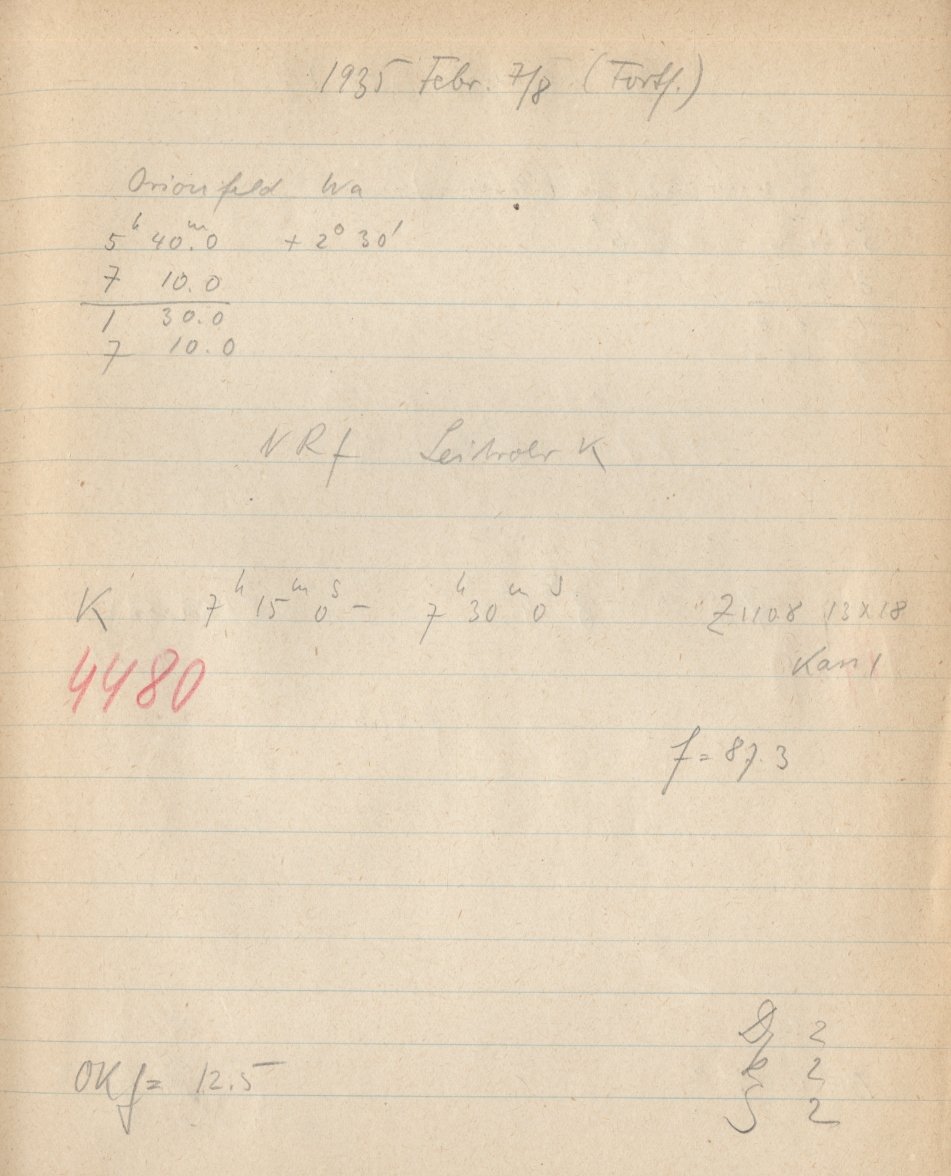 1935 Febr. 7/8 (Forts.)
Orionfeld Wa
5h 40m.0 + 2° 30'
7 10.0
1 30.0
7 10.0
NRf Leitrohr K
K 7h 15m 0s – 7h 30m 0s Z1108 13x18
4480 Kass 1
f = 87.3
D 2
R 2
OKf = 12.5
S 2